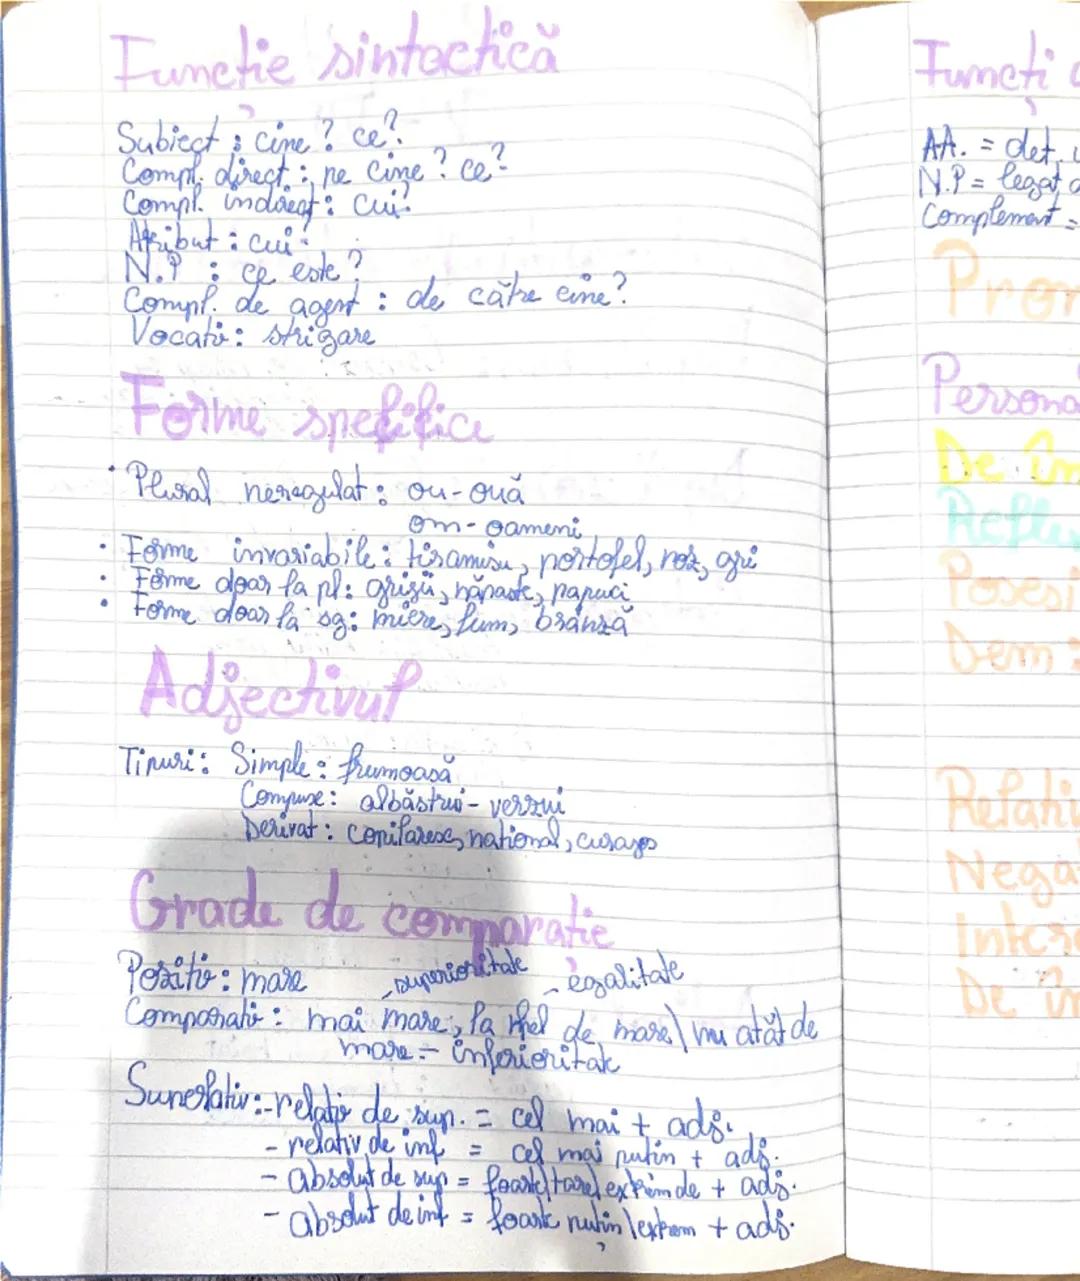 Funcție sintactică
Subiect : cine? ce?
Compl. direct : pe cine? ce?
Compl. indirect : cui?
Atribut : cui?
N.P : ce este?
Compl. de agent : de către cine?
Vocativ : strigare
Forme spefifice
• Plural neregulat : ou-ouă
om-oameni
• Forme invariabile : tiramisu, portofel, roz, gri
• Forme doar la pl: grișii, năpaste, papuci
• Forme doar la sg: miere, fum, brânză
Adjectivul
Tipuri : Simple : frumoasă
Compuse : albăstrui-verzui
Derivat : copilaresc, national, curajos
Grade de comparatie
Pozitiv : mare
superioritate - egalitate
Comparativ : mai mare, la fel de mare \ nu atăt de
mare - inferioritate
Superlativ :- relativ de sup. = cel mai + adj.
- relativ de inf = cel mai putin + adj.
- absolut de sup = foarte/tare/extrem de + adj.
- absolut de inf = foarte puțin \ extrem + adj.
Funcți
AA. = det.
N.P = legat
Complement =
Pron
Persona
De îm
Reflex
Posesi
Dem :
Relativ
Nega
Inter
De în